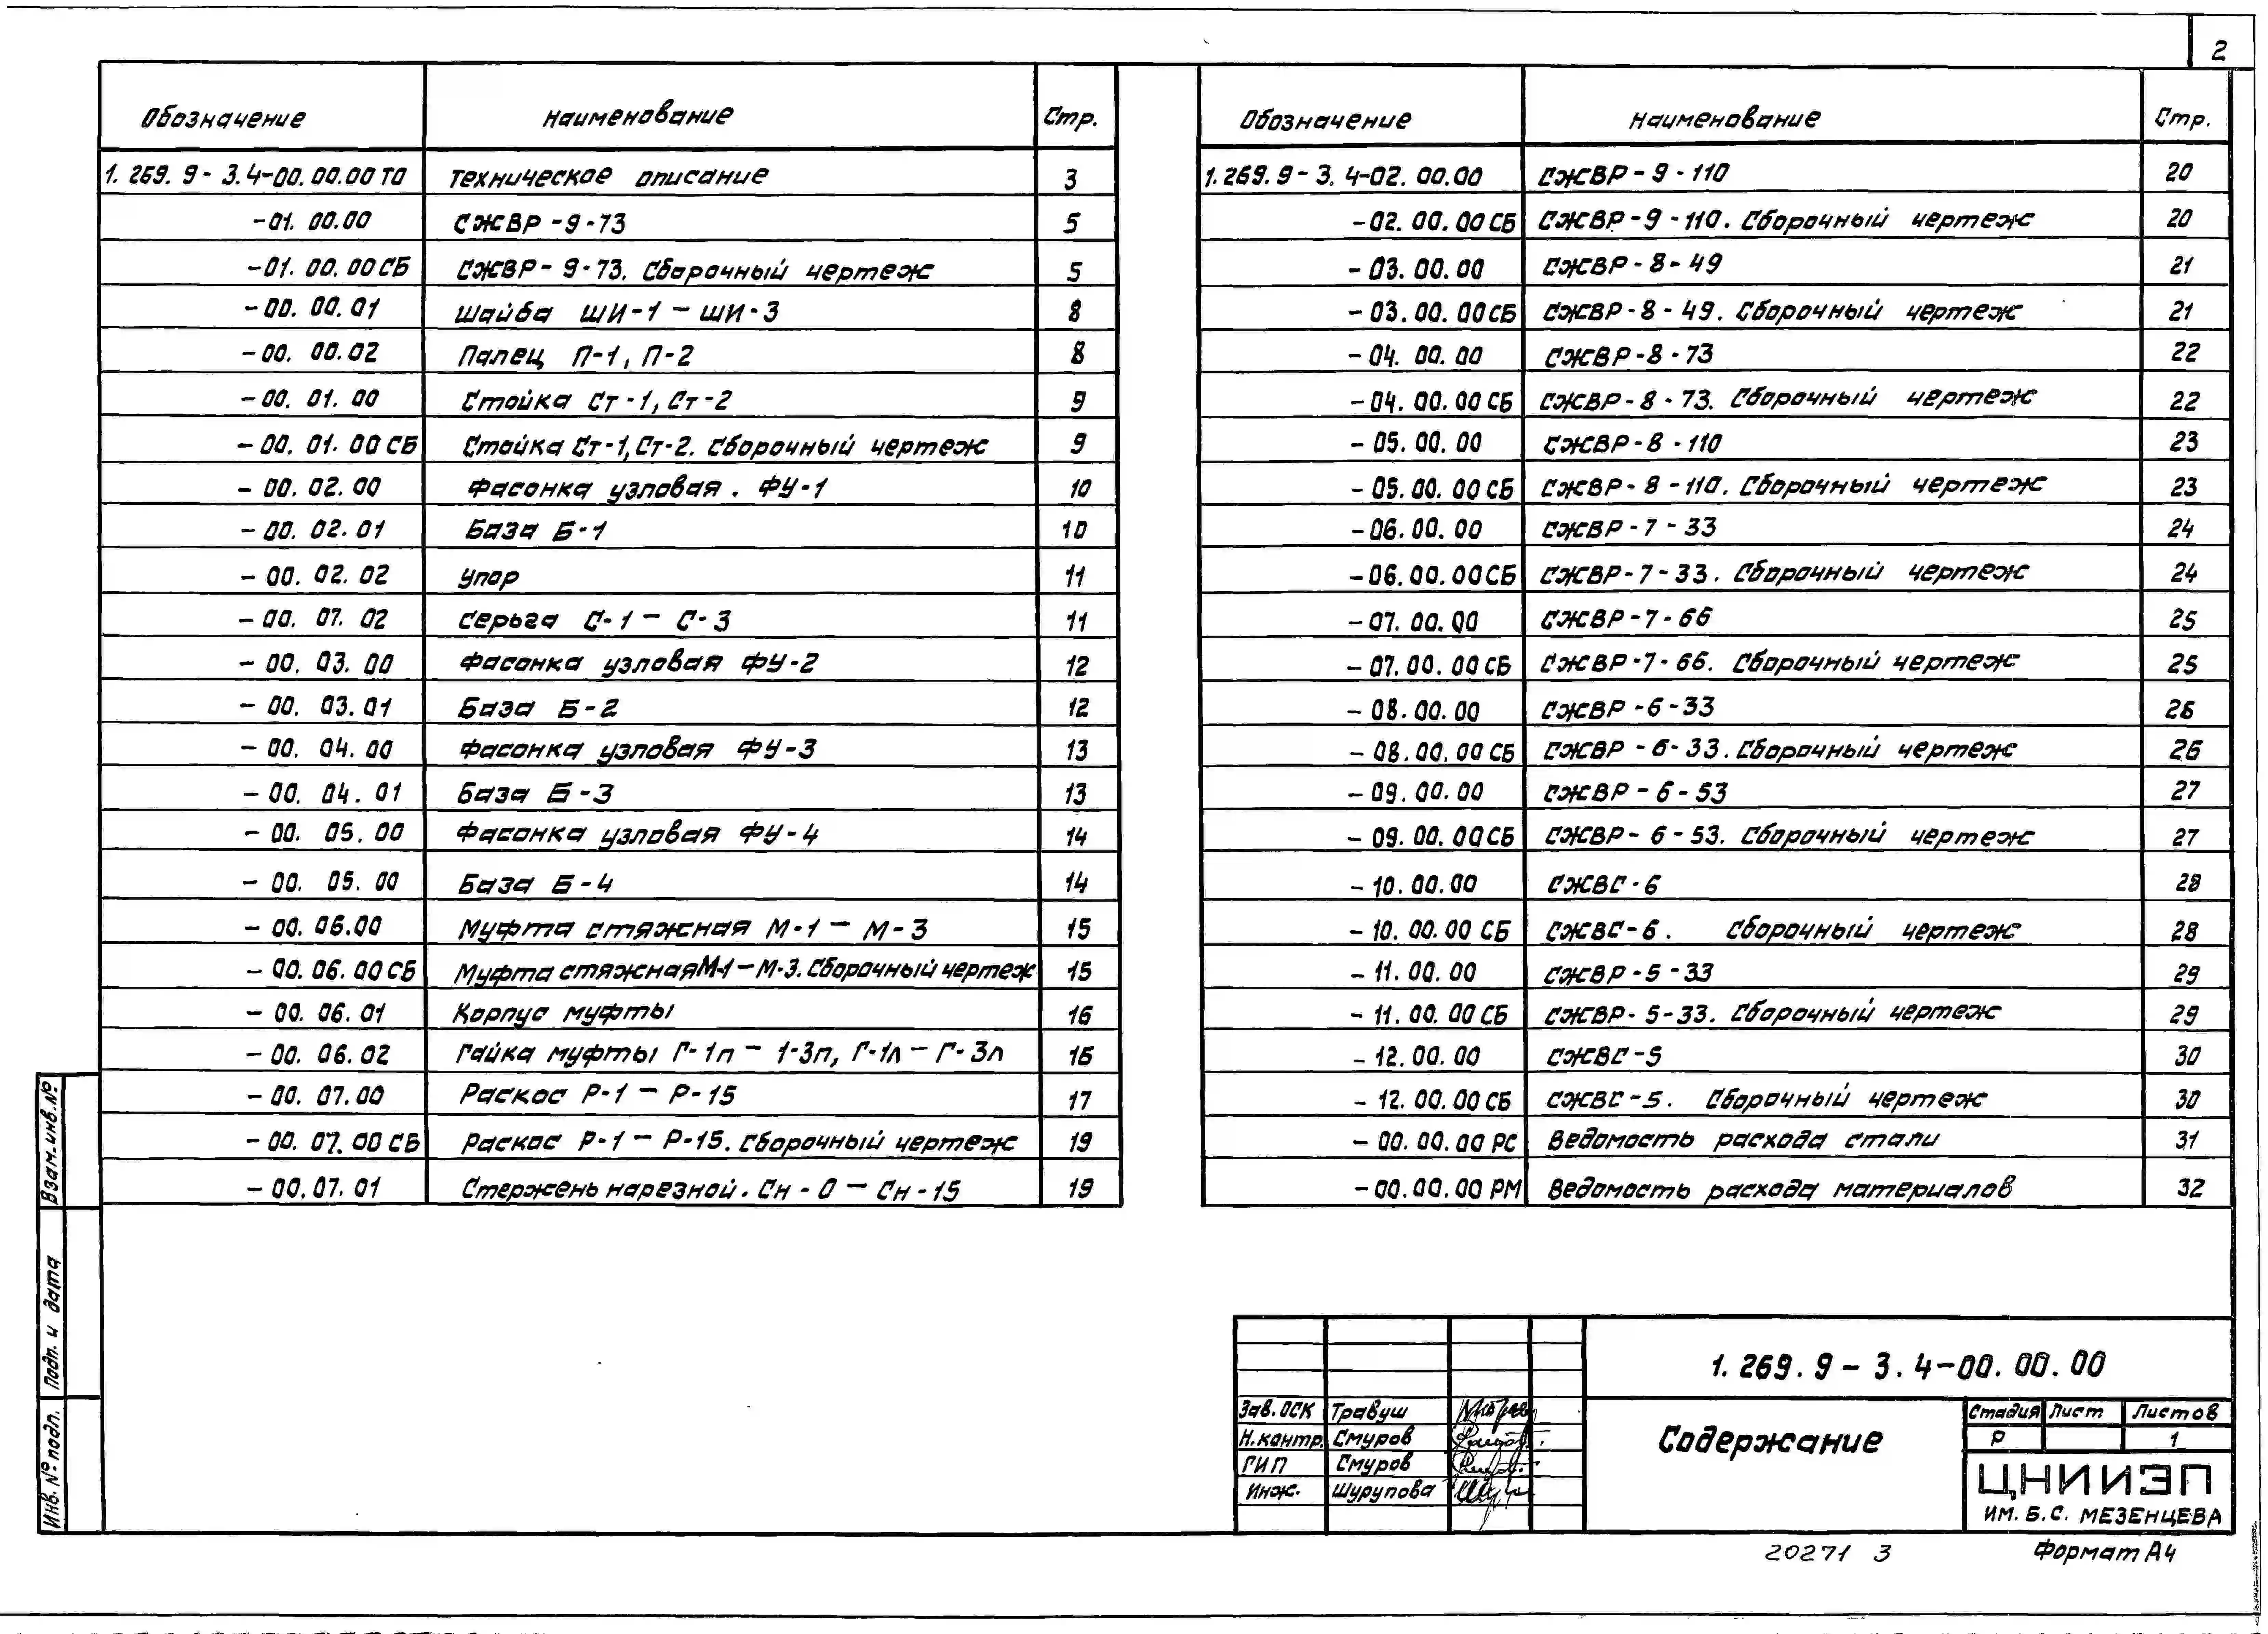 2
Обозначение Наименование Стр.
1.269.9-3.4-00.00.00 ТО Техническое описание 3
-01.00.00 СЖВР-9-73 5
-01.00.00 СБ СЖВР-9-73. Сборочный чертеж 5
-00.00.01 Шайба ШИ-1 – ШИ-3 8
-00.00.02 Палец П-1, П-2 8
-00.01.00 Стойка Ст-1, Ст-2 9
-00.01.00 СБ Стойка Ст-1, Ст-2. Сборочный чертеж 9
-00.02.00 Фасонка узловая. ФУ-1 10
-00.02.01 База Б-1 10
-00.02.02 Упор 11
-00.07.02 Серьга С-1 – С-3 11
-00.03.00 Фасонка узловая ФУ-2 12
-00.03.01 База Б-2 12
-00.04.00 Фасонка узловая ФУ-3 13
-00.04.01 База Б-3 13
-00.05.00 Фасонка узловая ФУ-4 14
-00.05.00 База Б-4 14
-00.06.00 Муфта стяжная М-1 – М-3 15
-00.06.00 СБ Муфта стяжная М-1 – М-3. Сборочный чертеж 15
-00.06.01 Корпус муфты 16
-00.06.02 Гайка муфты Г-1п – 1-3п, Г-1л – Г-3л 16
-00.07.00 Раскос Р-1 – Р-15 17
-00.07.00 СБ Раскос Р-1 – Р-15. Сборочный чертеж 19
-00.07.01 Стержень нарезной. Сн-0 – Сн-15 19
Обозначение Наименование Стр.
1.269.9-3.4-02.00.00 СЖВР-9-110 20
-02.00.00 СБ СЖВР-9-110. Сборочный чертеж 20
-03.00.00 СЖВР-8-49 21
-03.00.00 СБ СЖВР-8-49. Сборочный чертеж 21
-04.00.00 СЖВР-8-73 22
-04.00.00 СБ СЖВР-8-73. Сборочный чертеж 22
-05.00.00 СЖВР-8-110 23
-05.00.00 СБ СЖВР-8-110. Сборочный чертеж 23
-06.00.00 СЖВР-7-33 24
-06.00.00 СБ СЖВР-7-33. Сборочный чертеж 24
-07.00.00 СЖВР-7-66 25
-07.00.00 СБ СЖВР-7-66. Сборочный чертеж 25
-08.00.00 СЖВР-6-33 26
-08.00.00 СБ СЖВР-6-33. Сборочный чертеж 26
-09.00.00 СЖВР-6-53 27
-09.00.00 СБ СЖВР-6-53. Сборочный чертеж 27
-10.00.00 СЖВС-6 28
-10.00.00 СБ СЖВС-6. Сборочный чертеж 28
-11.00.00 СЖВР-5-33 29
-11.00.00 СБ СЖВР-5-33. Сборочный чертеж 29
-12.00.00 СЖВС-5 30
-12.00.00 СБ СЖВС-5. Сборочный чертеж 30
-00.00.00 РС Ведомость расхода стали 31
-00.00.00 РМ Ведомость расхода материалов 32
Взам. инв. №
Подп. и дата
Инв. № подл.
1.269.9-3.4-00.00.00
Зав. ОСК Травуш
Н. контр. Смуров
ГИП Смуров
Инж. Шурупова
Содержание
Стадия Лист Листов
Р 1
ЦНИИЭП
ИМ. Б.С. МЕЗЕНЦЕВА
20271 3 Формат А4